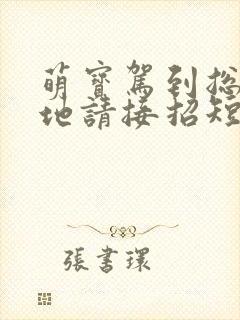 萌寶駕到總
地請接招短
張書環